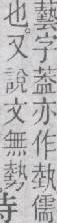 藝字葢亦作埶儒
也又說文無勢